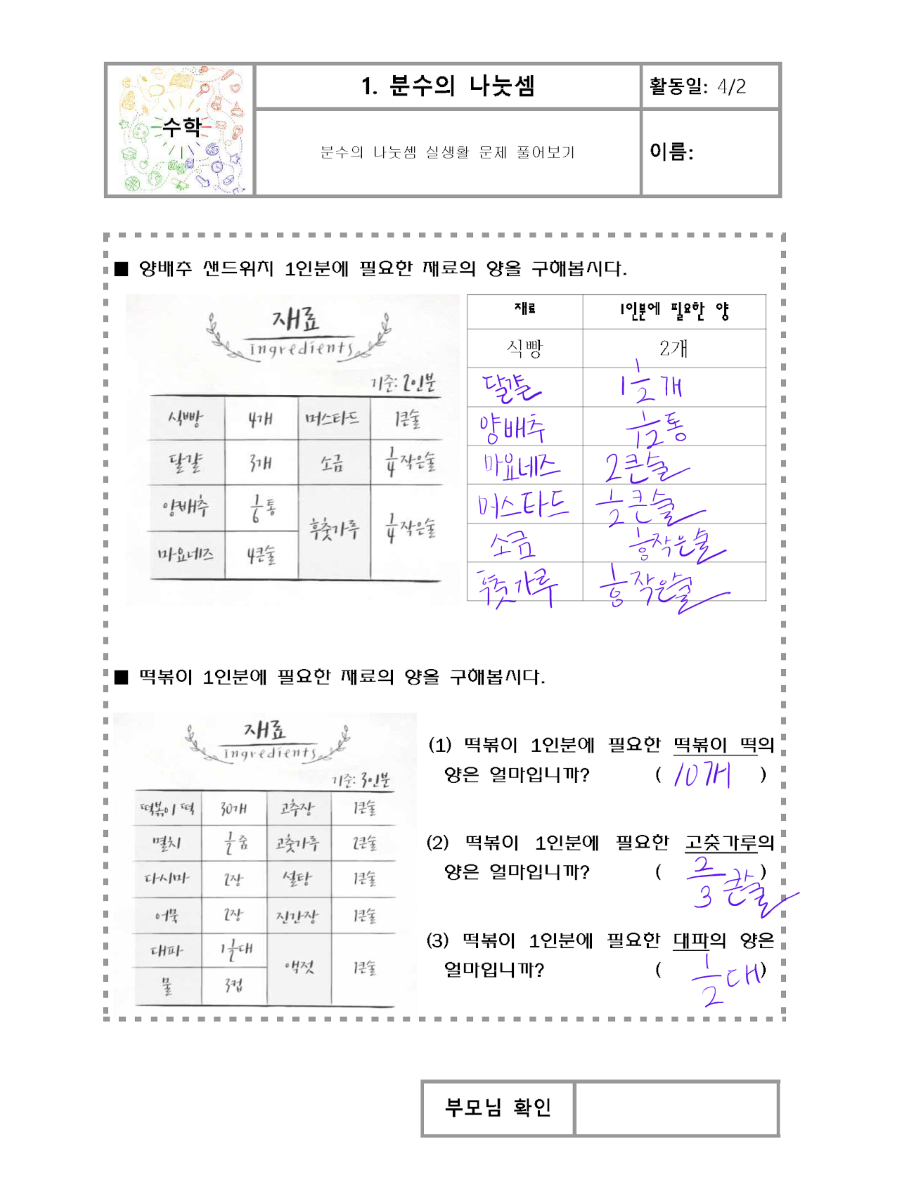 수학
1. 분수의 나눗셈
활동일: 4/2
분수의 나눗셈 실생활 문제 풀어보기
이름:
■ 양배추 샌드위치 1인분에 필요한 재료의 양을 구해봅시다.
재료
ingredients
기준: 2인분
식빵 4개 머스타드 1큰술
달걀 3개 소금 1/4작은술
양배추 1/6통 후춧가루 1/4작은술
마요네즈 4큰술
재료 1인분에 필요한 양
식빵 2개
달걀 1 1/2개
양배추 1/12통
마요네즈 2큰술
머스타드 1/2큰술
소금 1/8작은술
후춧가루 1/8작은술
■ 떡볶이 1인분에 필요한 재료의 양을 구해봅시다.
재료
ingredients
기준: 3인분
떡볶이 떡 30개 고추장 1큰술
멸치 1/2줌 고춧가루 2큰술
다시마 2장 설탕 1큰술
어묵 2장 진간장 1큰술
대파 1 1/2대 액젓 1큰술
물 3컵
(1) 떡볶이 1인분에 필요한 떡볶이 떡의
양은 얼마입니까? ( 10개 )
(2) 떡볶이 1인분에 필요한 고춧가루의
양은 얼마입니까? ( 2/3큰술 )
(3) 떡볶이 1인분에 필요한 대파의 양은
얼마입니까? ( 1/2대 )
부모님 확인